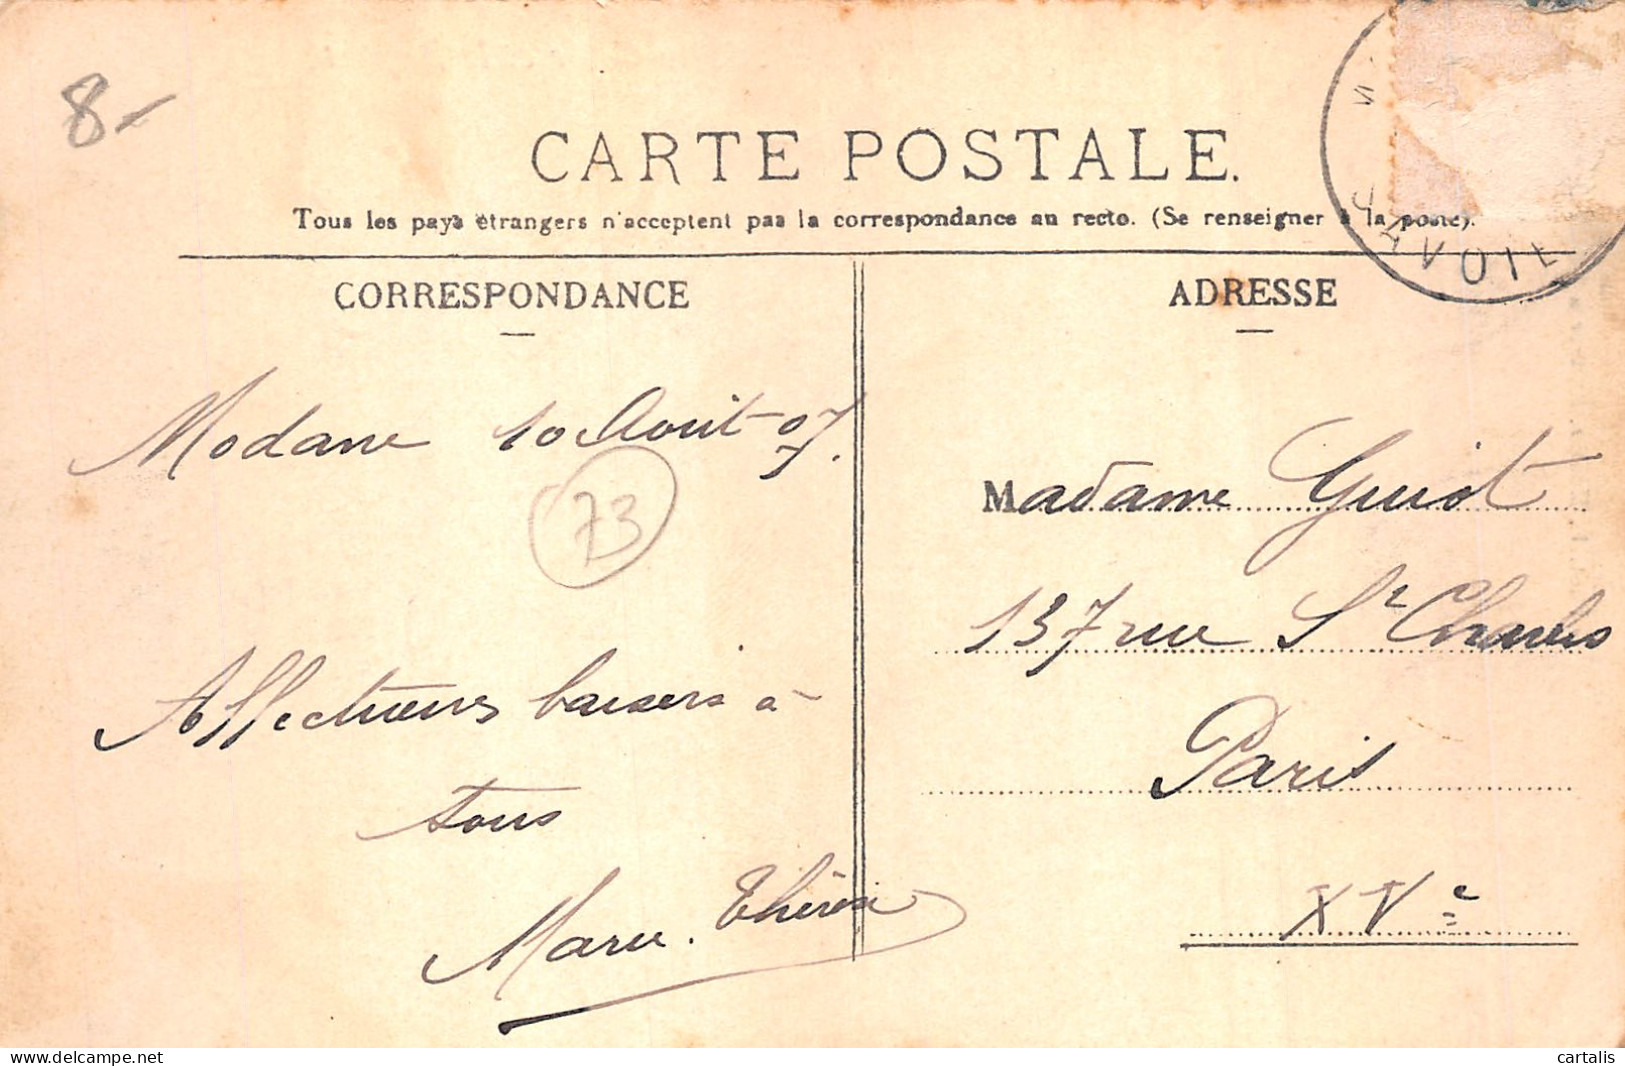 8-
CARTE POSTALE.
Tous les pays étrangers n'acceptent pas la correspondance au recto. (Se renseigner à la poste).
AVOIE
CORRESPONDANCE
ADRESSE
Modane 10 Août 07.
73
Affectueux baisers à
tous
Marie. Thérèse
Madame Guiot
137 rue St Charles
Paris
XVe
www.delcampe.net
cartalis